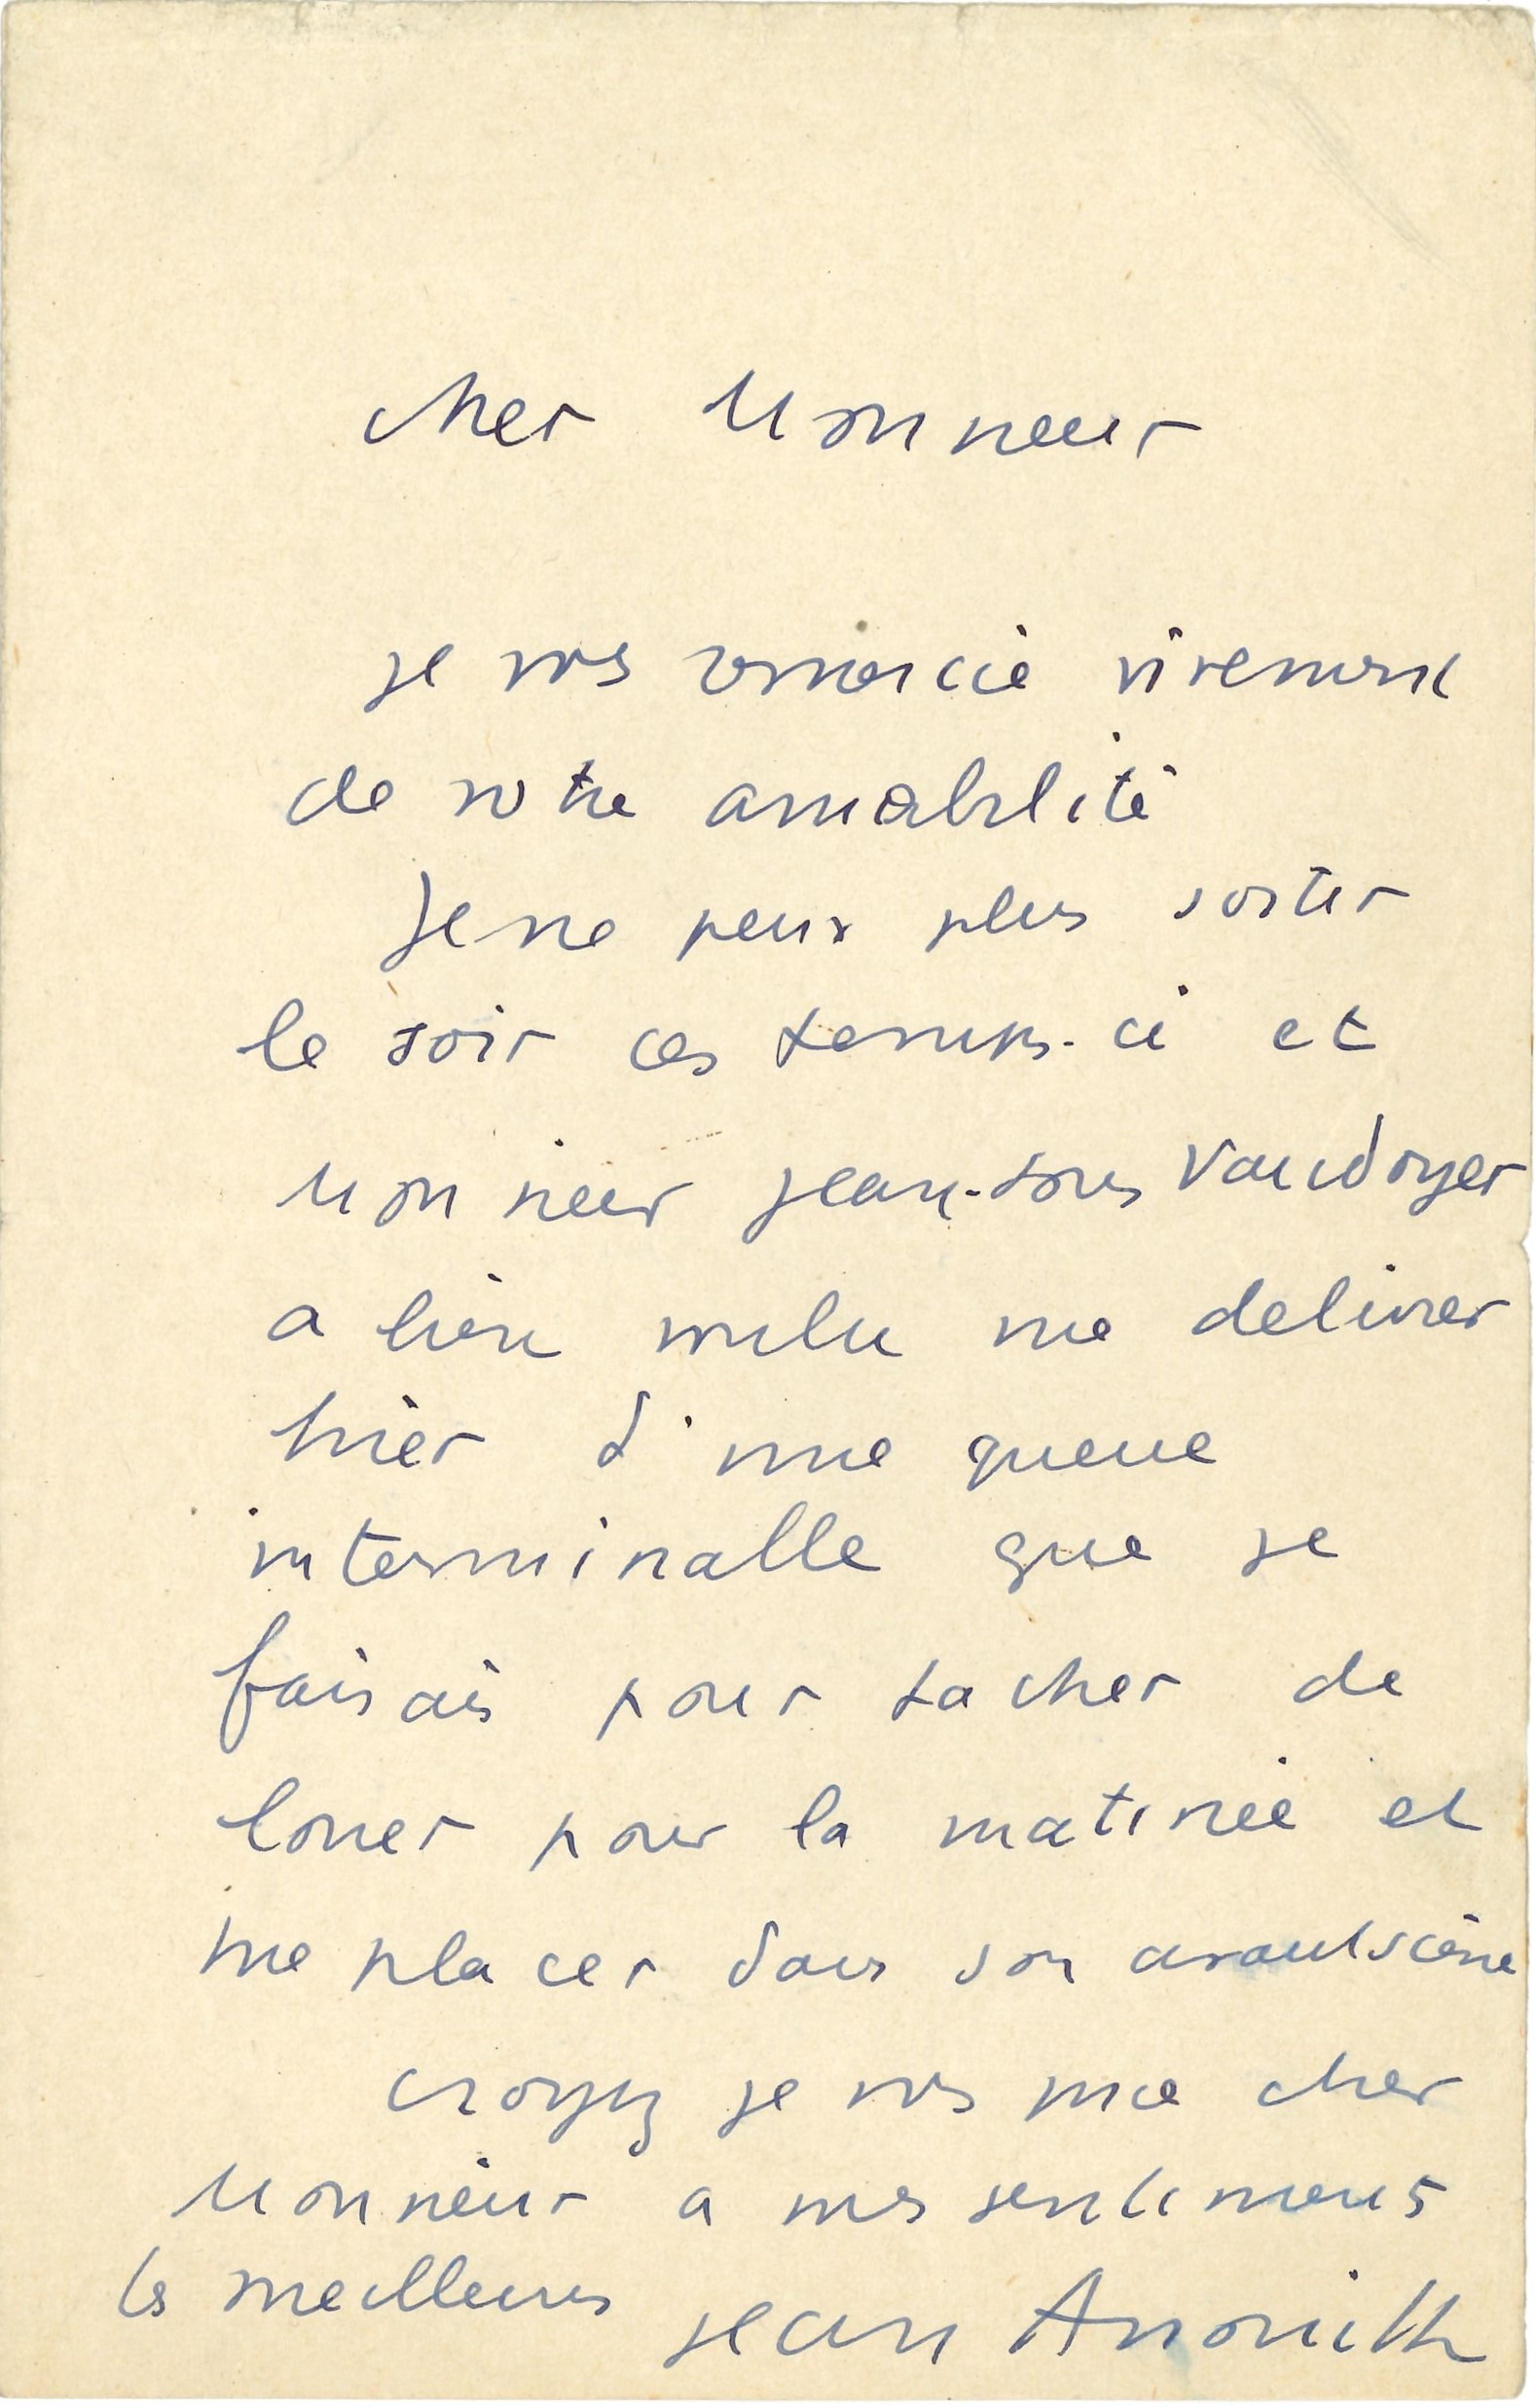 Cher Monsieur
je vous remercie vivement
de votre amabilité
Je ne peux plus sortir
le soir ces temps-ci et
Monsieur Jean-Louis Vaudoyer
a bien voulu me delivrer
hier d'une queue
interminable que je
faisais pour tacher de
louer pour la matinée et
me placer dans son avant scène
Croyez je vous prie cher
Monsieur a mes sentiments
les meilleurs Jean Anouilh